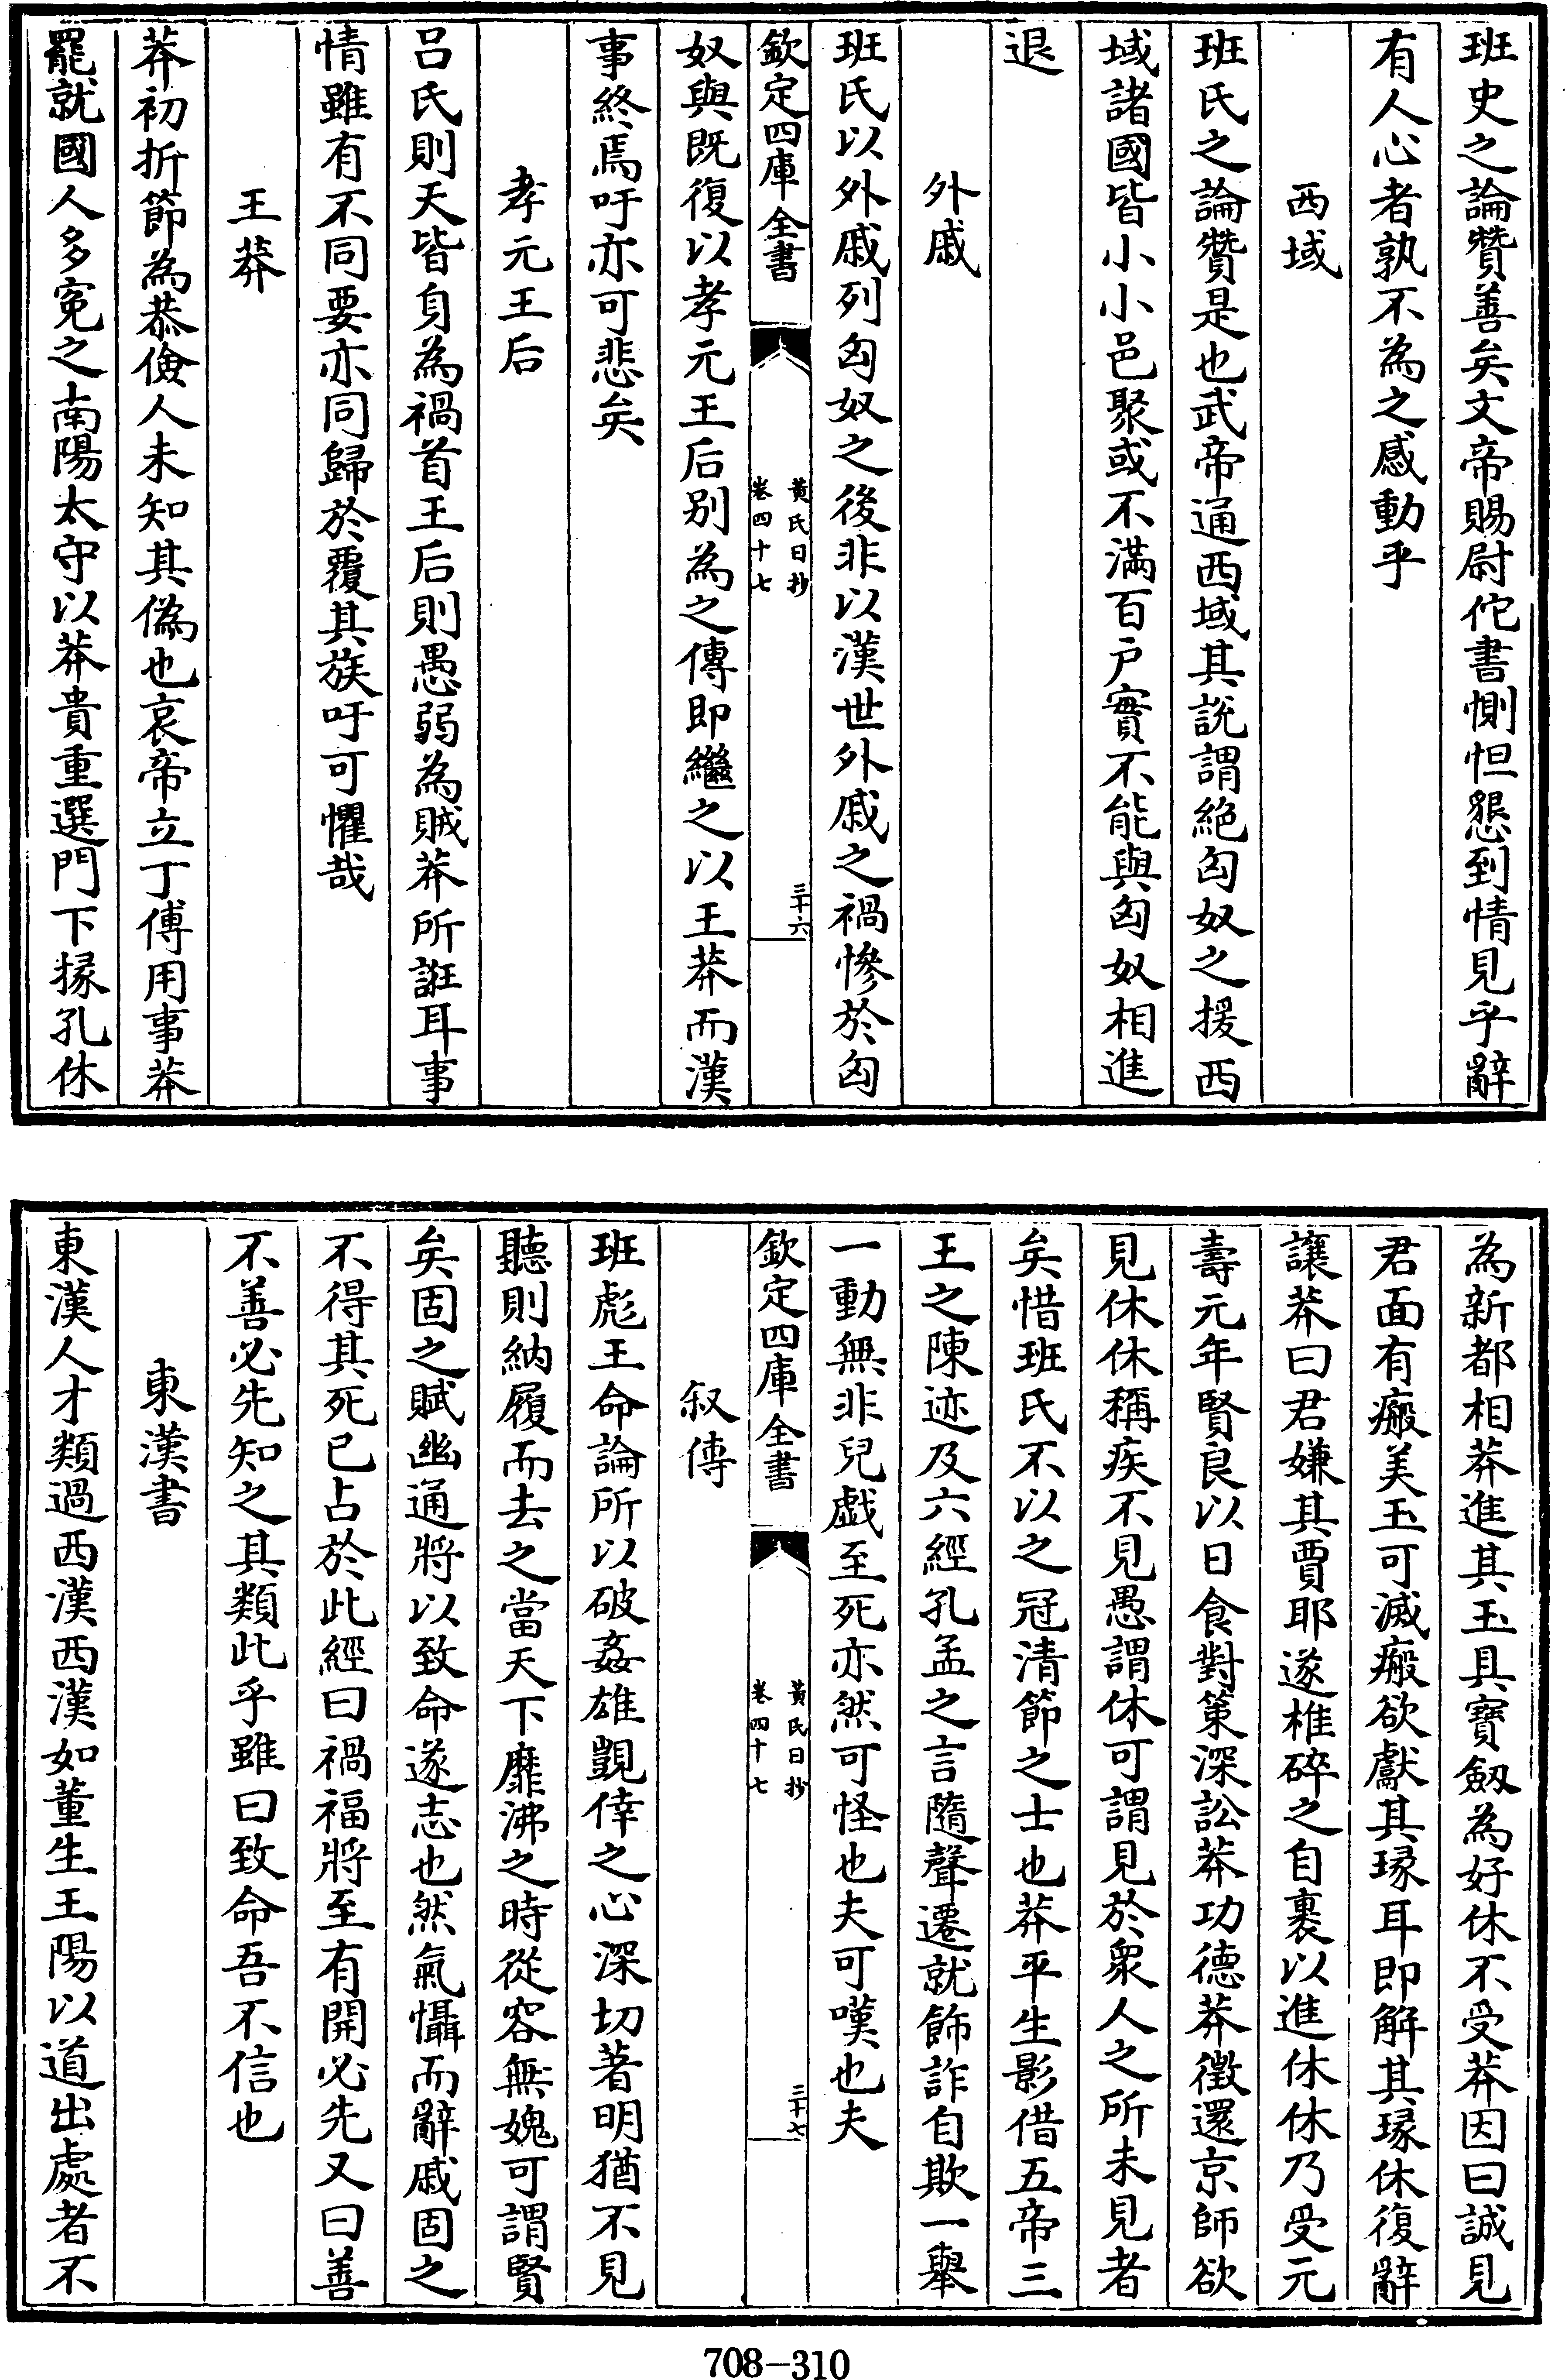 班史之論贊善矣文帝賜尉佗書惻怛懇到情見乎辭
有人心者孰不為之感動乎
西域
班氏之論贊是也武帝通西域其說謂絕匈奴之援西
域諸國皆小小邑聚或不滿百戶實不能與匈奴相進
退
外戚
班氏以外戚列匈奴之後非以漢世外戚之禍慘於匈
欽定四庫全書
黃氏日抄
卷四十七
三十六
奴與既復以孝元王后别為之傳即繼之以王莽而漢
事終焉吁亦可悲矣
孝元王后
呂氏則天皆身為禍首王后則愚弱為賊莽所誑耳事
情雖有不同要亦同歸於覆其族吁可懼哉
王莽
莽初折節為恭儉人未知其偽也哀帝立丁傅用事莽
罷就國人多寃之南陽太守以莽貴重選門下掾孔休
為新都相莽進其玉具寶劒為好休不受莽因曰誠見
君面有瘢美玉可滅瘢欲獻其瑑耳即解其瑑休復辭
讓莽曰君嫌其賈耶遂椎碎之自裹以進休休乃受元
壽元年賢良以日食對策深訟莽功德莽徵還京師欲
見休休稱疾不見愚謂休可謂見於衆人之所未見者
矣惜班氏不以之冠清節之士也莽平生影借五帝三
王之陳迹及六經孔孟之言隨聲遷就飾詐自欺一舉
一動無非兒戲至死亦然可怪也夫可嘆也夫
欽定四庫全書
黃氏日抄
卷四十七
三十七
叙傳
班彪王命論所以破姦雄覬倖之心深切著明猶不見
聽則納履而去之當天下靡沸之時從容無媿可謂賢
矣固之賦幽通將以致命遂志也然氣懾而辭戚固之
不得其死已占於此經曰禍福將至有開必先又曰善
不善必先知之其類此乎雖曰致命吾不信也
東漢書
東漢人才類過西漢西漢如董生王陽以道出處者不
708-310